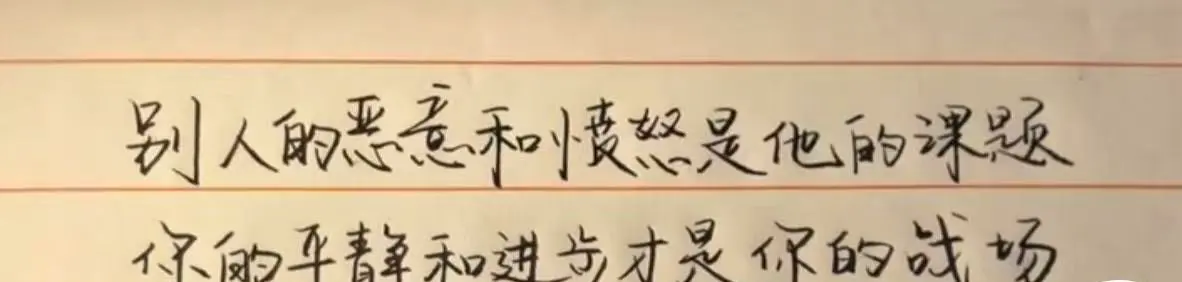 别人的恶意和愤怒是他的课题
你的平静和进步才是你的战场